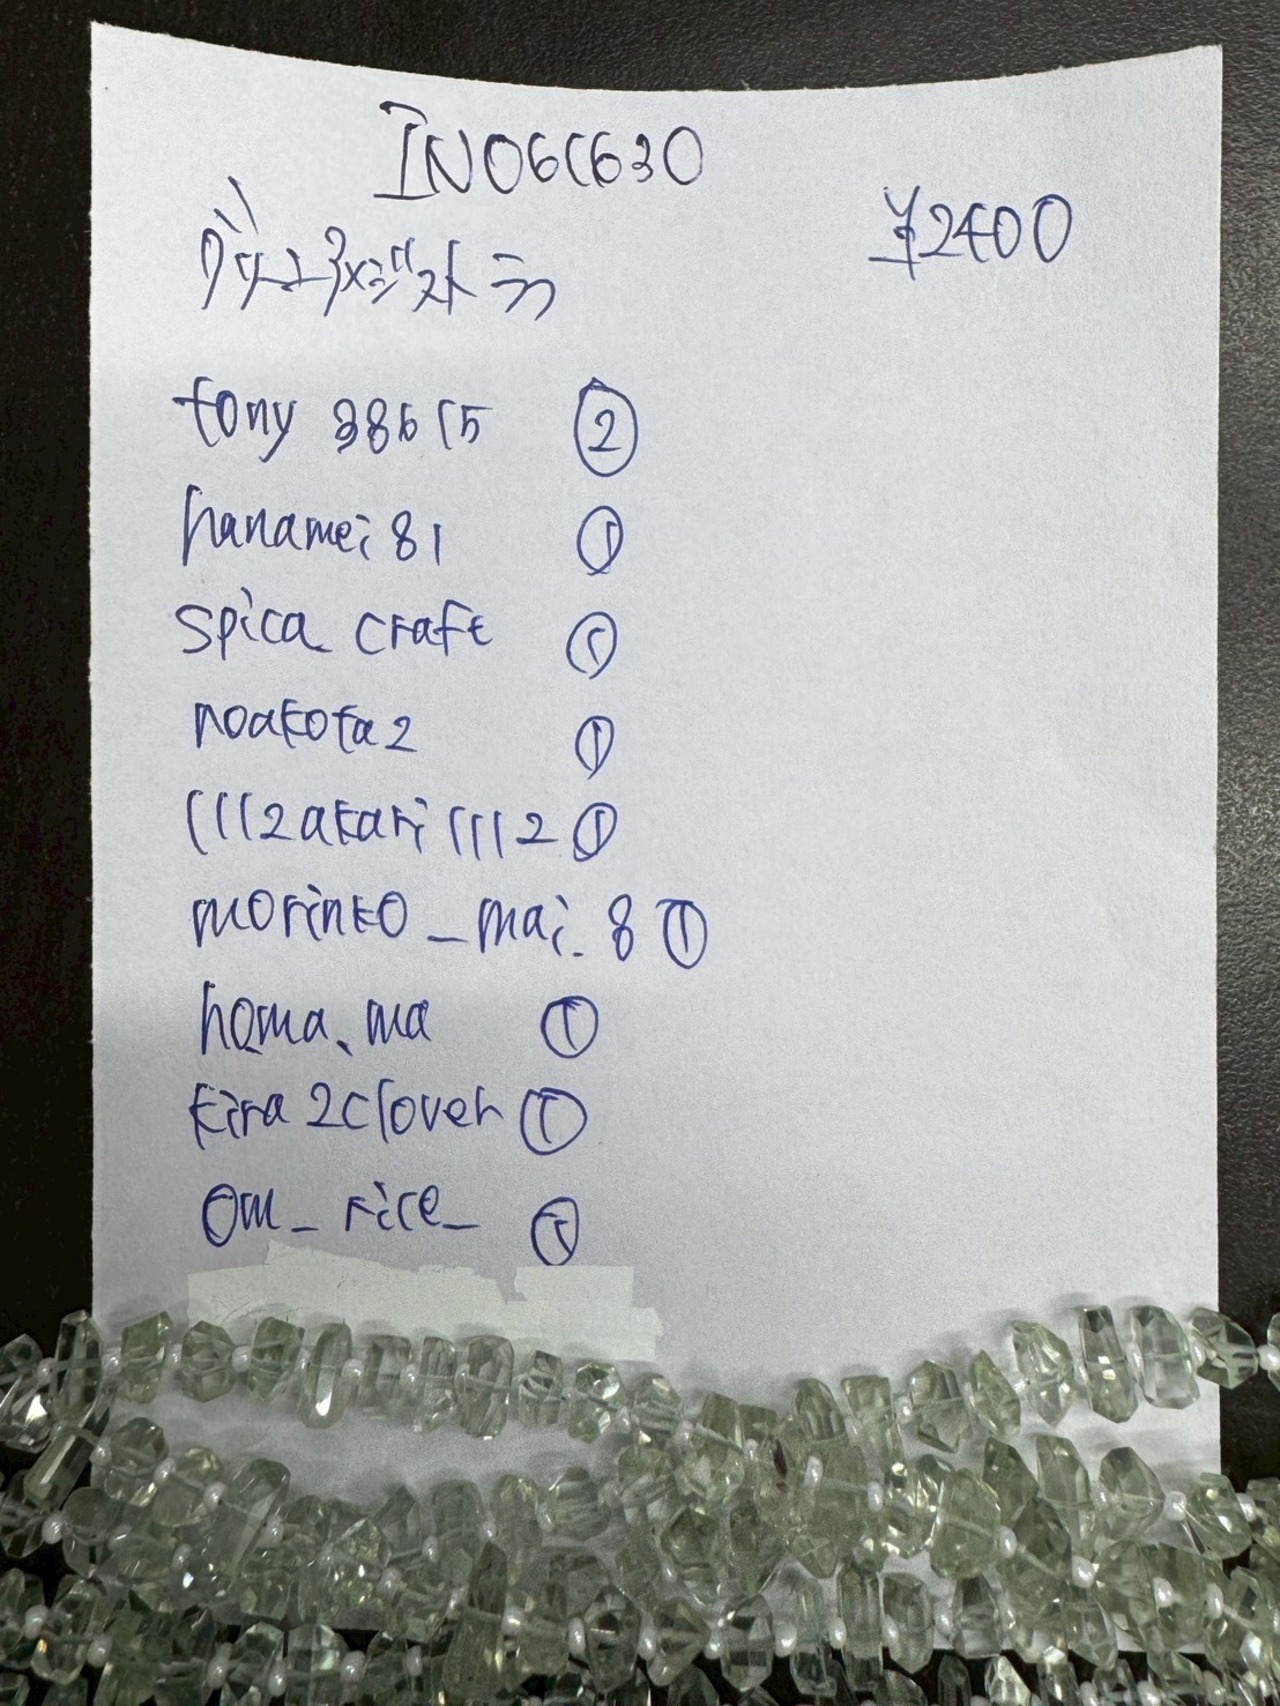 IN061630
¥2400
グリーンアメジストラフ
tony 38615 ②
hanamei81 ①
spica craft ①
noakota2 ①
1112akari1112 ①
morinko_mai_8 ①
homa.ma ①
kira2clover ①
om_rice_ ①